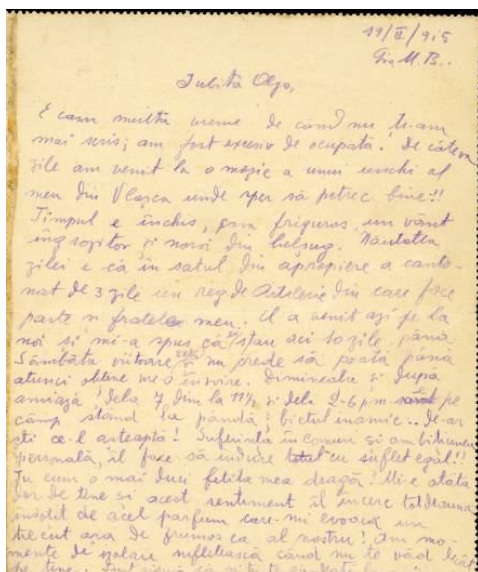 19/II/915
Gra M. B..
Iubită Olgo,
E cam multă vreme de când nu ți-am
mai scris; am fost excesiv de ocupată. De câteva
zile am venit la o moșie a unui unchi al
meu din Vlașca unde sper să petrec bine!!
Timpul e închis, cam friguros, un vânt
îngrozitor și noroi din belșug. Năutatea
zilei e că în satul din apropiere a canto-
nat de 3 zile un reg de Artilerie din care face
parte și fratele meu. El a venit azi pe la
noi și mi-a spus că stau aci 10 zile, până
Sâmbăta viitoare și nu crede să poată până
atunci obține vre-o învoire. Dimineața și după
amiază! Dela 7 dim la 11½ și dela 2-6 pm pe
câmp stând la pândă! bietul inamic.. De-ar
ști ce-l așteaptă! Suferința în comun și ambițiunea
personală, îl face să îndure totul cu suflet egal!!
Tu cum o mai duci fetița mea dragă! Mi-e atâta
dor de tine și acest sentiment îl încerc totdeauna
însoțit de acel parfum care-mi evoacă un
trecut așa de frumos ca al nostru! Am mo-
mente de izolare sufletească când nu te văd decât
pe tine..